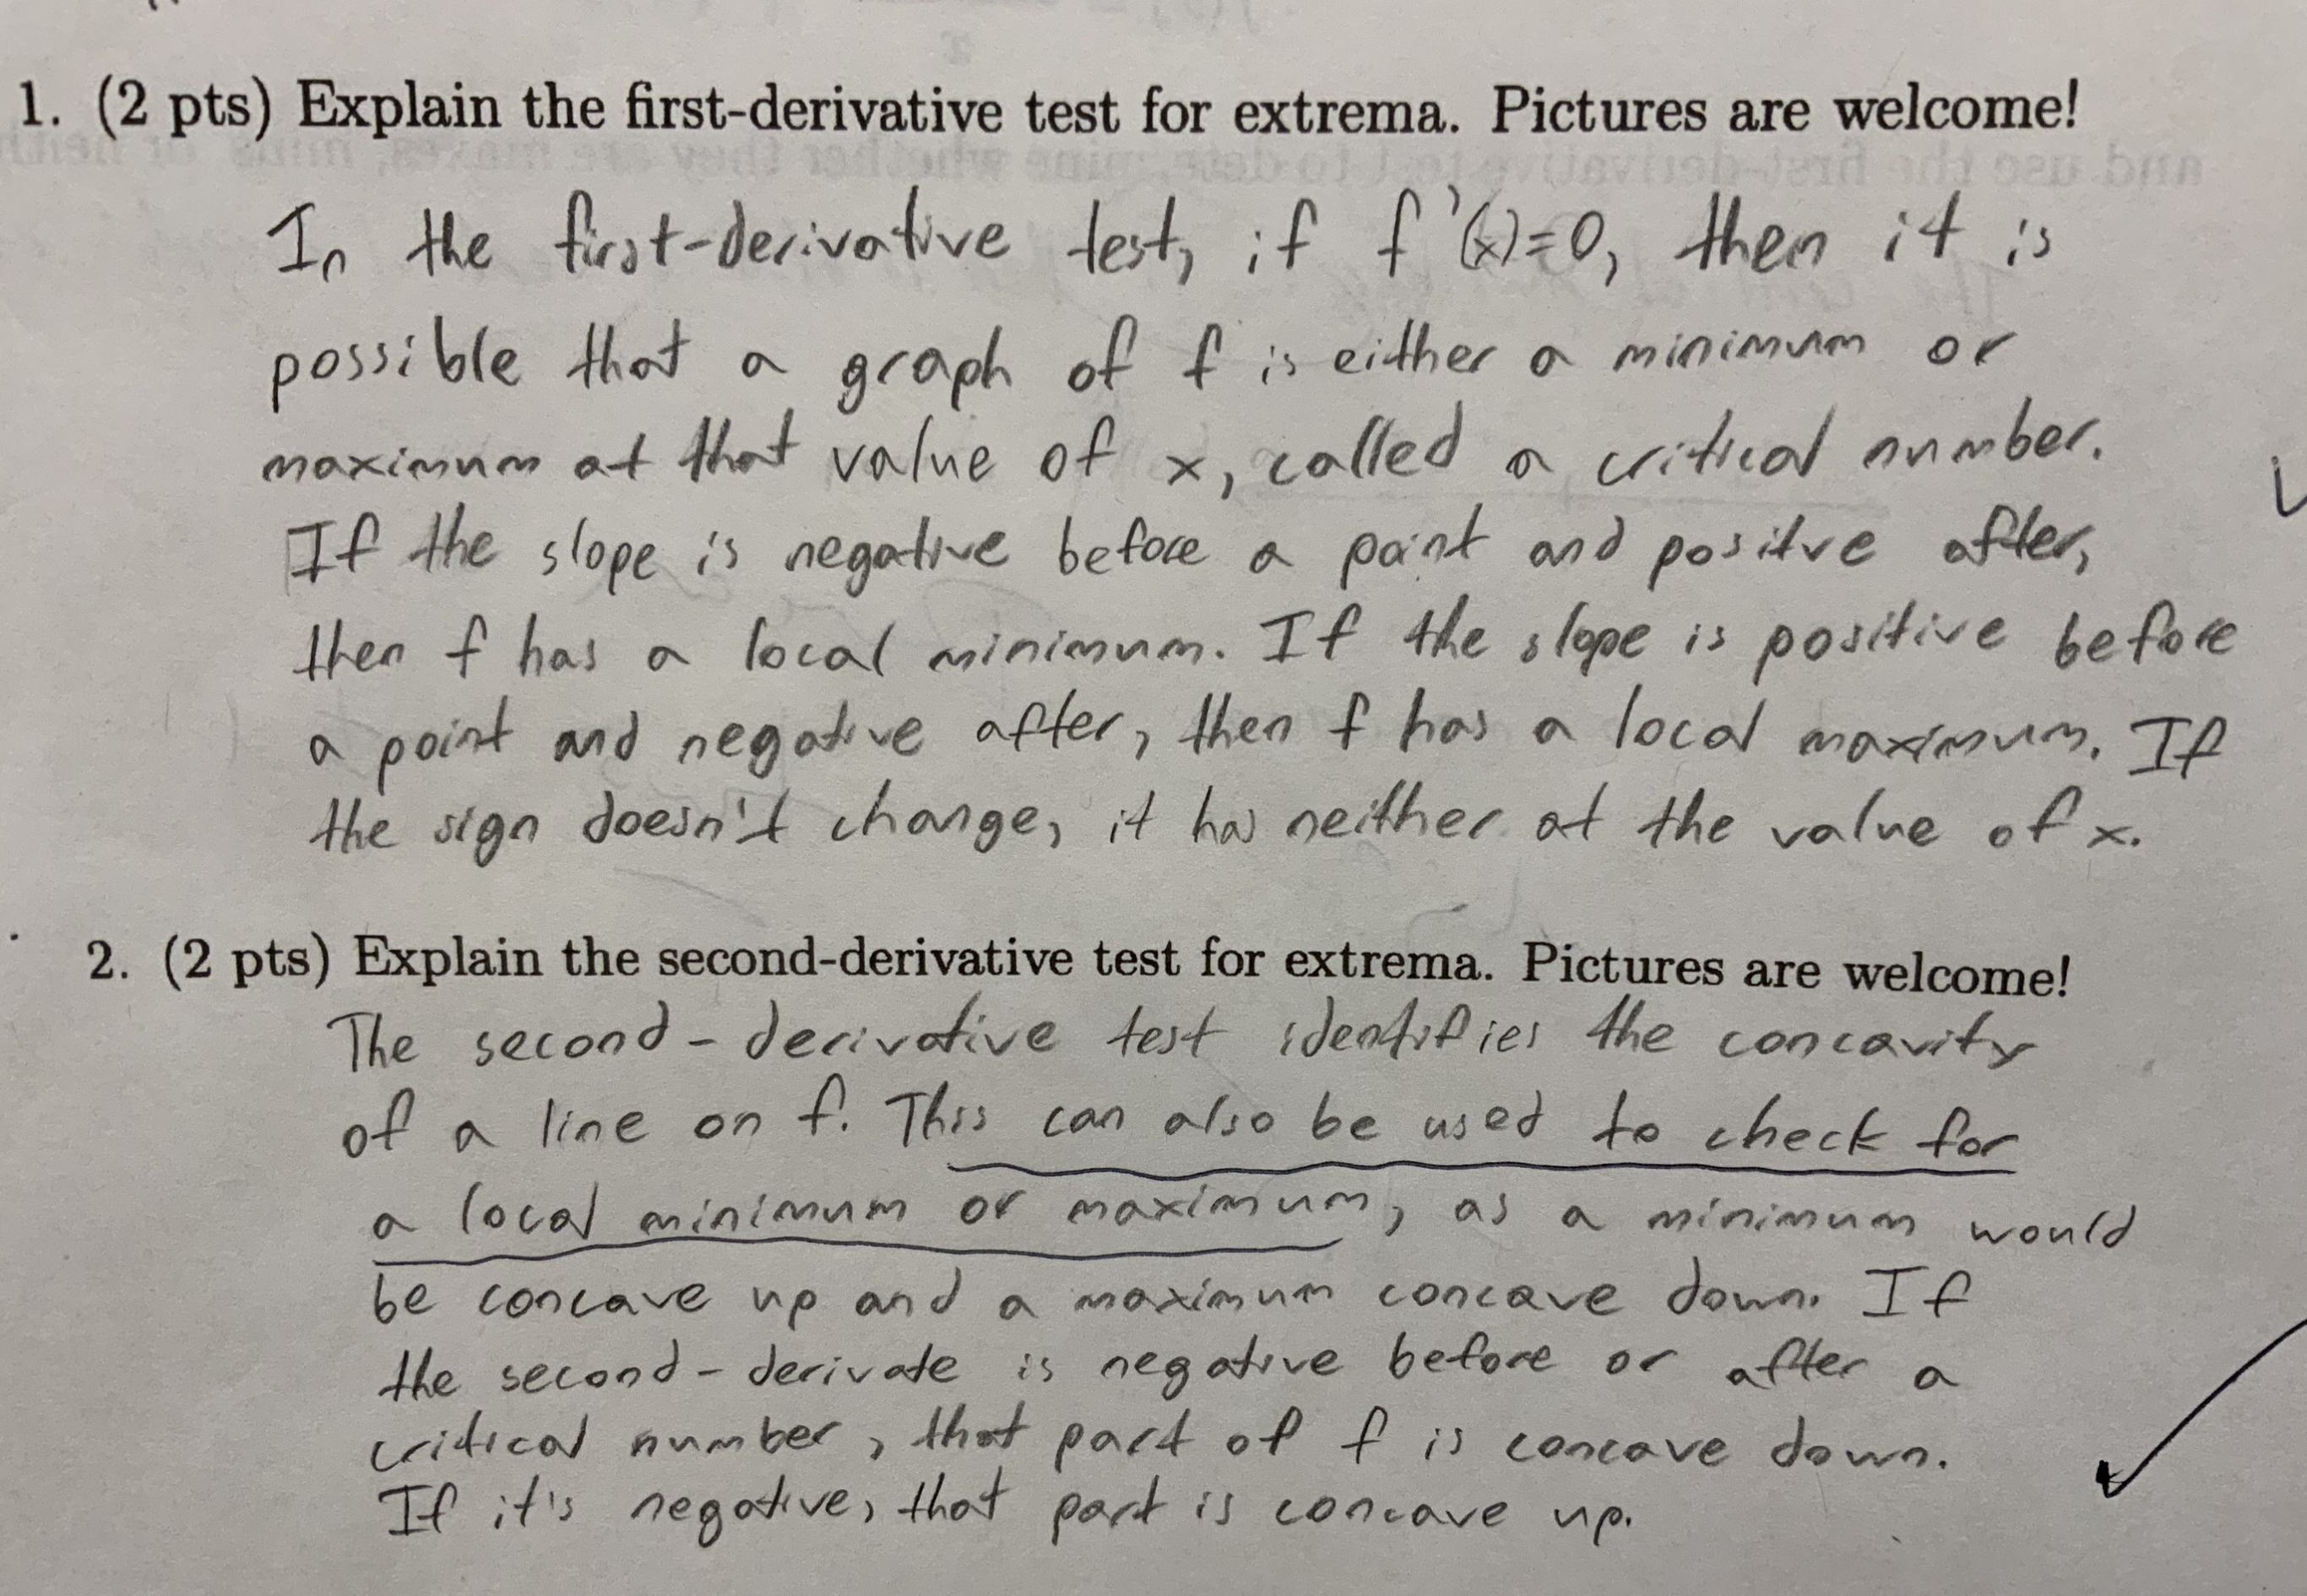 1. (2 pts) Explain the first-derivative test for extrema. Pictures are welcome!
In the first-derivative test, if f'(x)=0, then it is
possible that a graph of f is either a minimum or
maximum at that value of x, called a critical number.
If the slope is negative before a point and positve after,
then f has a local minimum. If the slope is positive before
a point and negative after, then f has a local maximum. If
the sign doesn't change, it has neither at the value of x.
2. (2 pts) Explain the second-derivative test for extrema. Pictures are welcome!
The second-derivative test identifies the concavity
of a line on f. This can also be used to check for
a local minimum or maximum, as a minimum would
be concave up and a maximum concave down. If
the second-derivate is negative before or after a
critical number, that part of f is concave down.
If it's negative, that part is concave up.